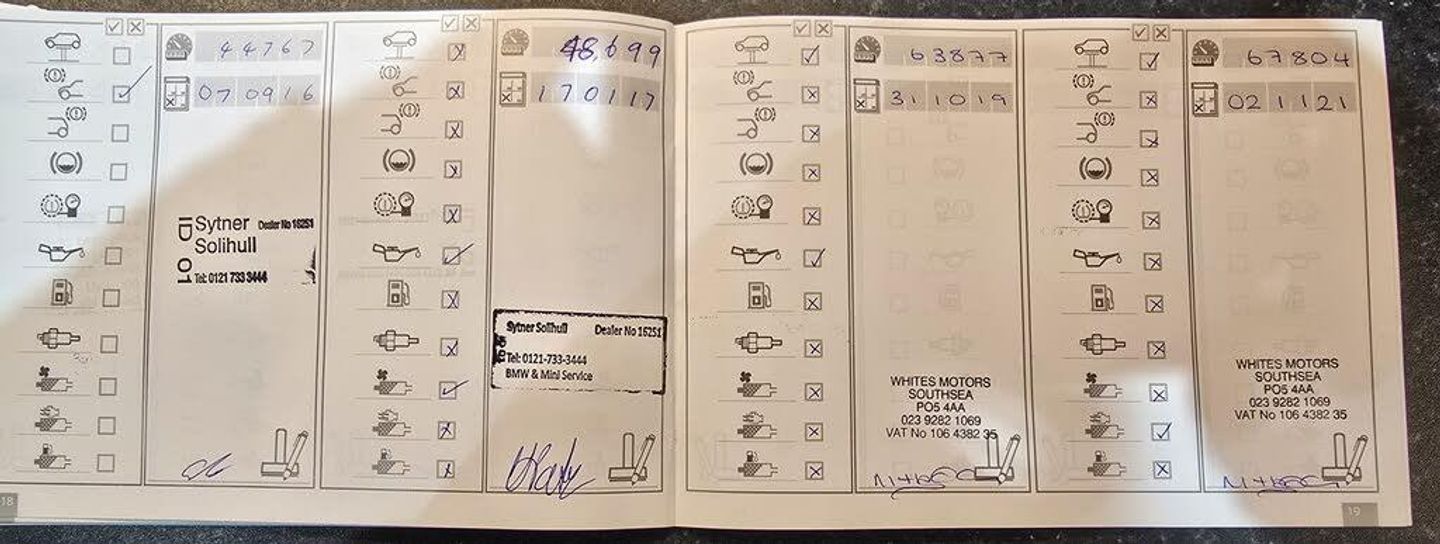 44767
070916
ID 01
Sytner Dealer No 16251
Solihull
Tel: 0121 733 3444
48,699
170117
Sytner Solihull Dealer No 16251
Tel: 0121-733-3444
BMW & Mini Service
18
63877
311019
WHITES MOTORS
SOUTHSEA
PO5 4AA
023 9282 1069
VAT No 106 4382 35
67804
021121
WHITES MOTORS
SOUTHSEA
PO5 4AA
023 9282 1069
VAT No 106 4382 35
19